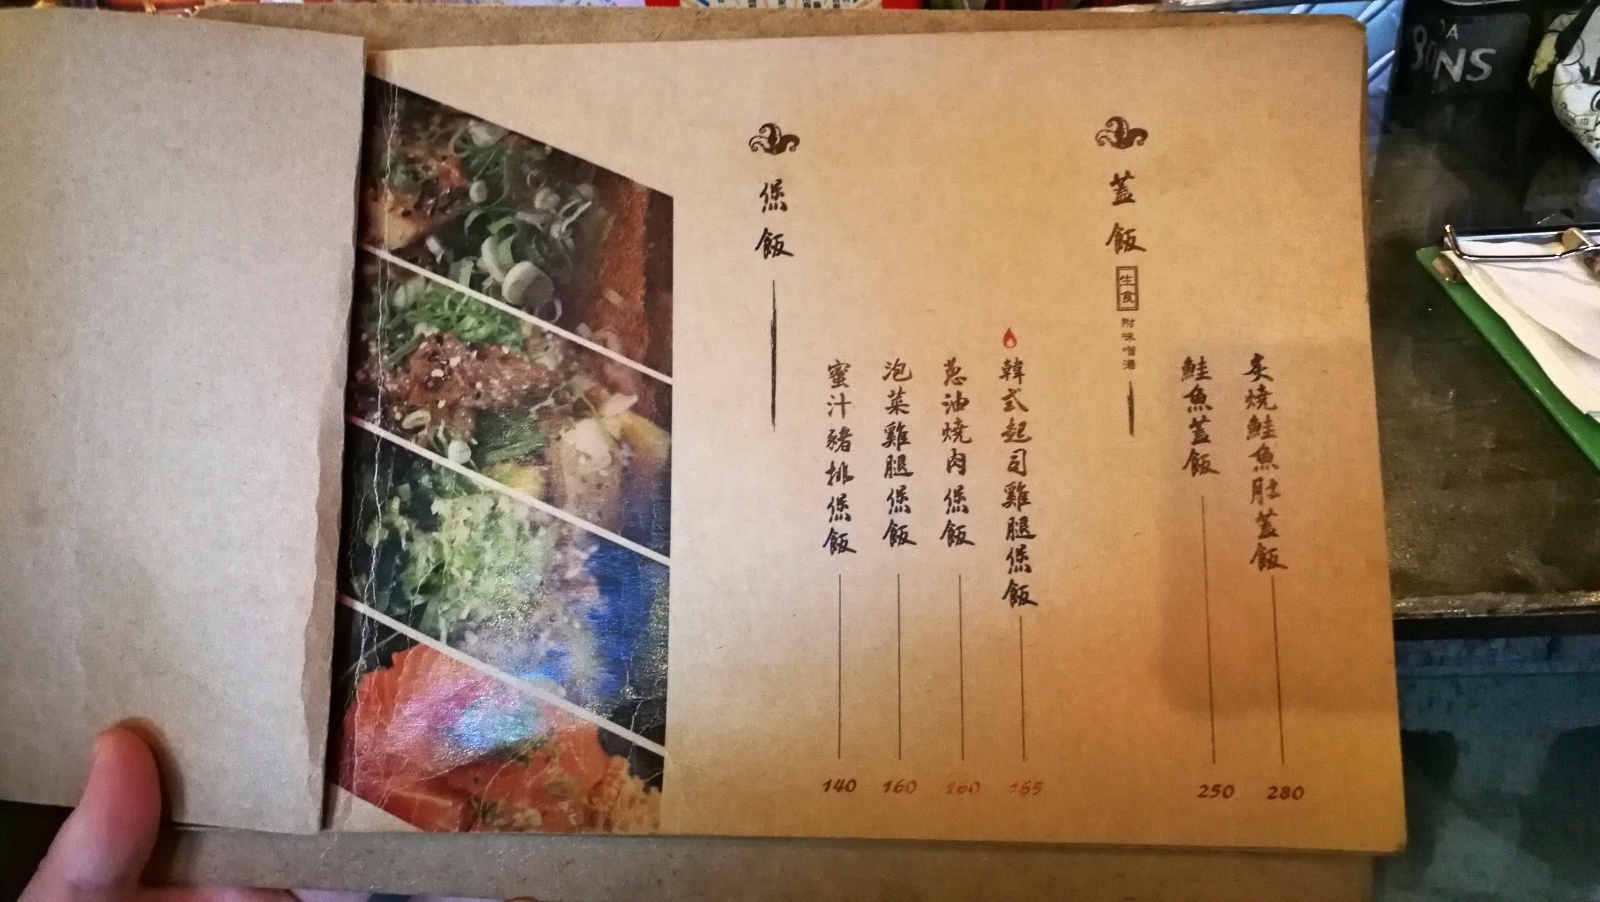 蓋飯
生食
附味噌湯
炙燒鮭魚肚蓋飯
280
鮭魚蓋飯
250
煲飯
韓式起司雞腿煲飯
165
蔥油燒肉煲飯
160
泡菜雞腿煲飯
160
蜜汁豬排煲飯
140